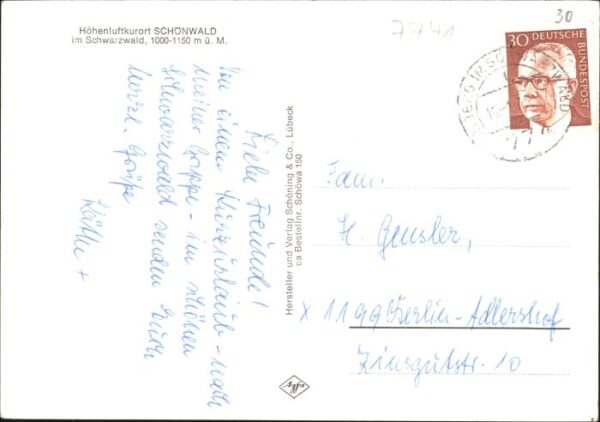 Höhenluftkurort SCHÖNWALD
im Schwarzwald, 1000-1150 m ü. M.
7741
30
30 DEUTSCHE
BUNDESPOST
Liebe Freunde!
Von einem Kurzurlaub - nach
meiner Grippe - im schönen
Schwarzwald senden Euch
herzl. Grüße
Käthe +
Hersteller und Verlag Schöning & Co., Lübeck
ca Bestellnr. Schöwa 150
Fam.
H. Gensler,
x 1199 Berlin-Adlershof
Zinsgutstr. 10